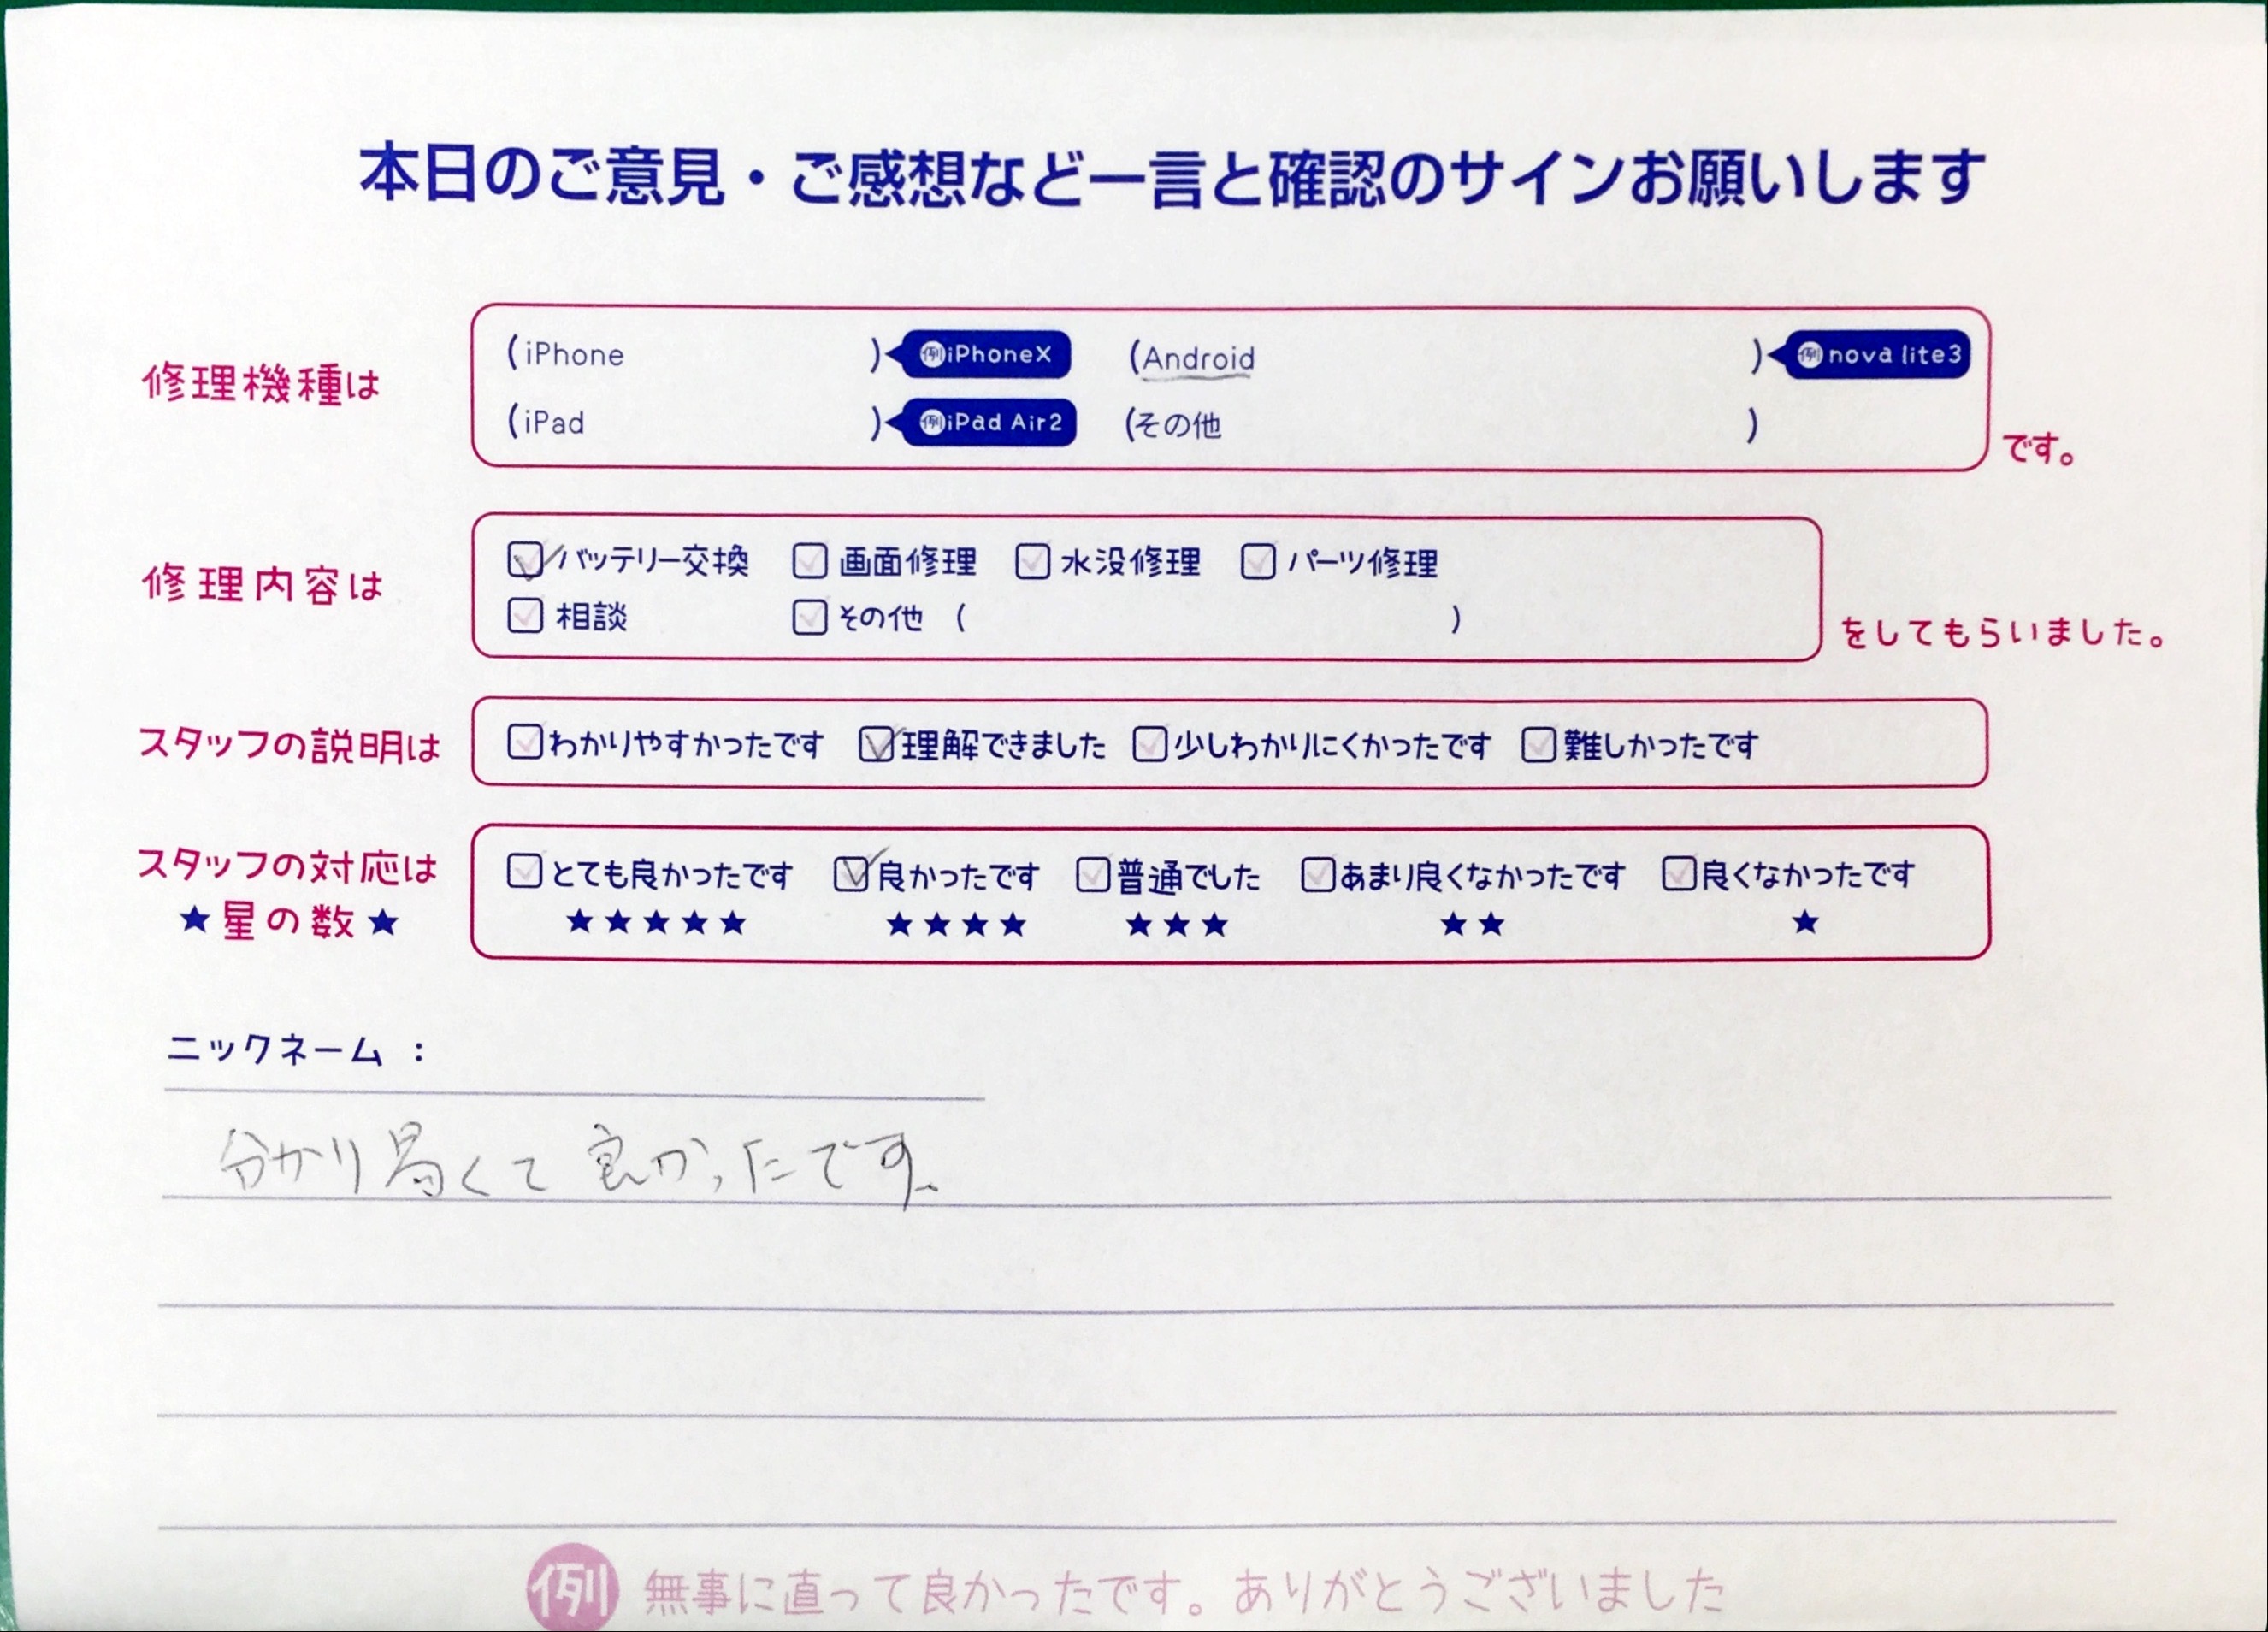 本日のご意見・ご感想など一言と確認のサインお願いします
修理機種は
(iPhone ) 例iPhoneX (Android ) 例nova lite3
(iPad ) 例iPad Air2 (その他 )
です。
修理内容は
バッテリー交換 画面修理 水没修理 パーツ修理
相談 その他 ( )
をしてもらいました。
スタッフの説明は
わかりやすかったです 理解できました 少しわかりにくかったです 難しかったです
スタッフの対応は
★星の数★
とても良かったです 良かったです 普通でした あまり良くなかったです 良くなかったです
★★★★★ ★★★★ ★★★ ★★ ★
ニックネーム：
分かり易くて良かったです。
例 無事に直って良かったです。ありがとうございました